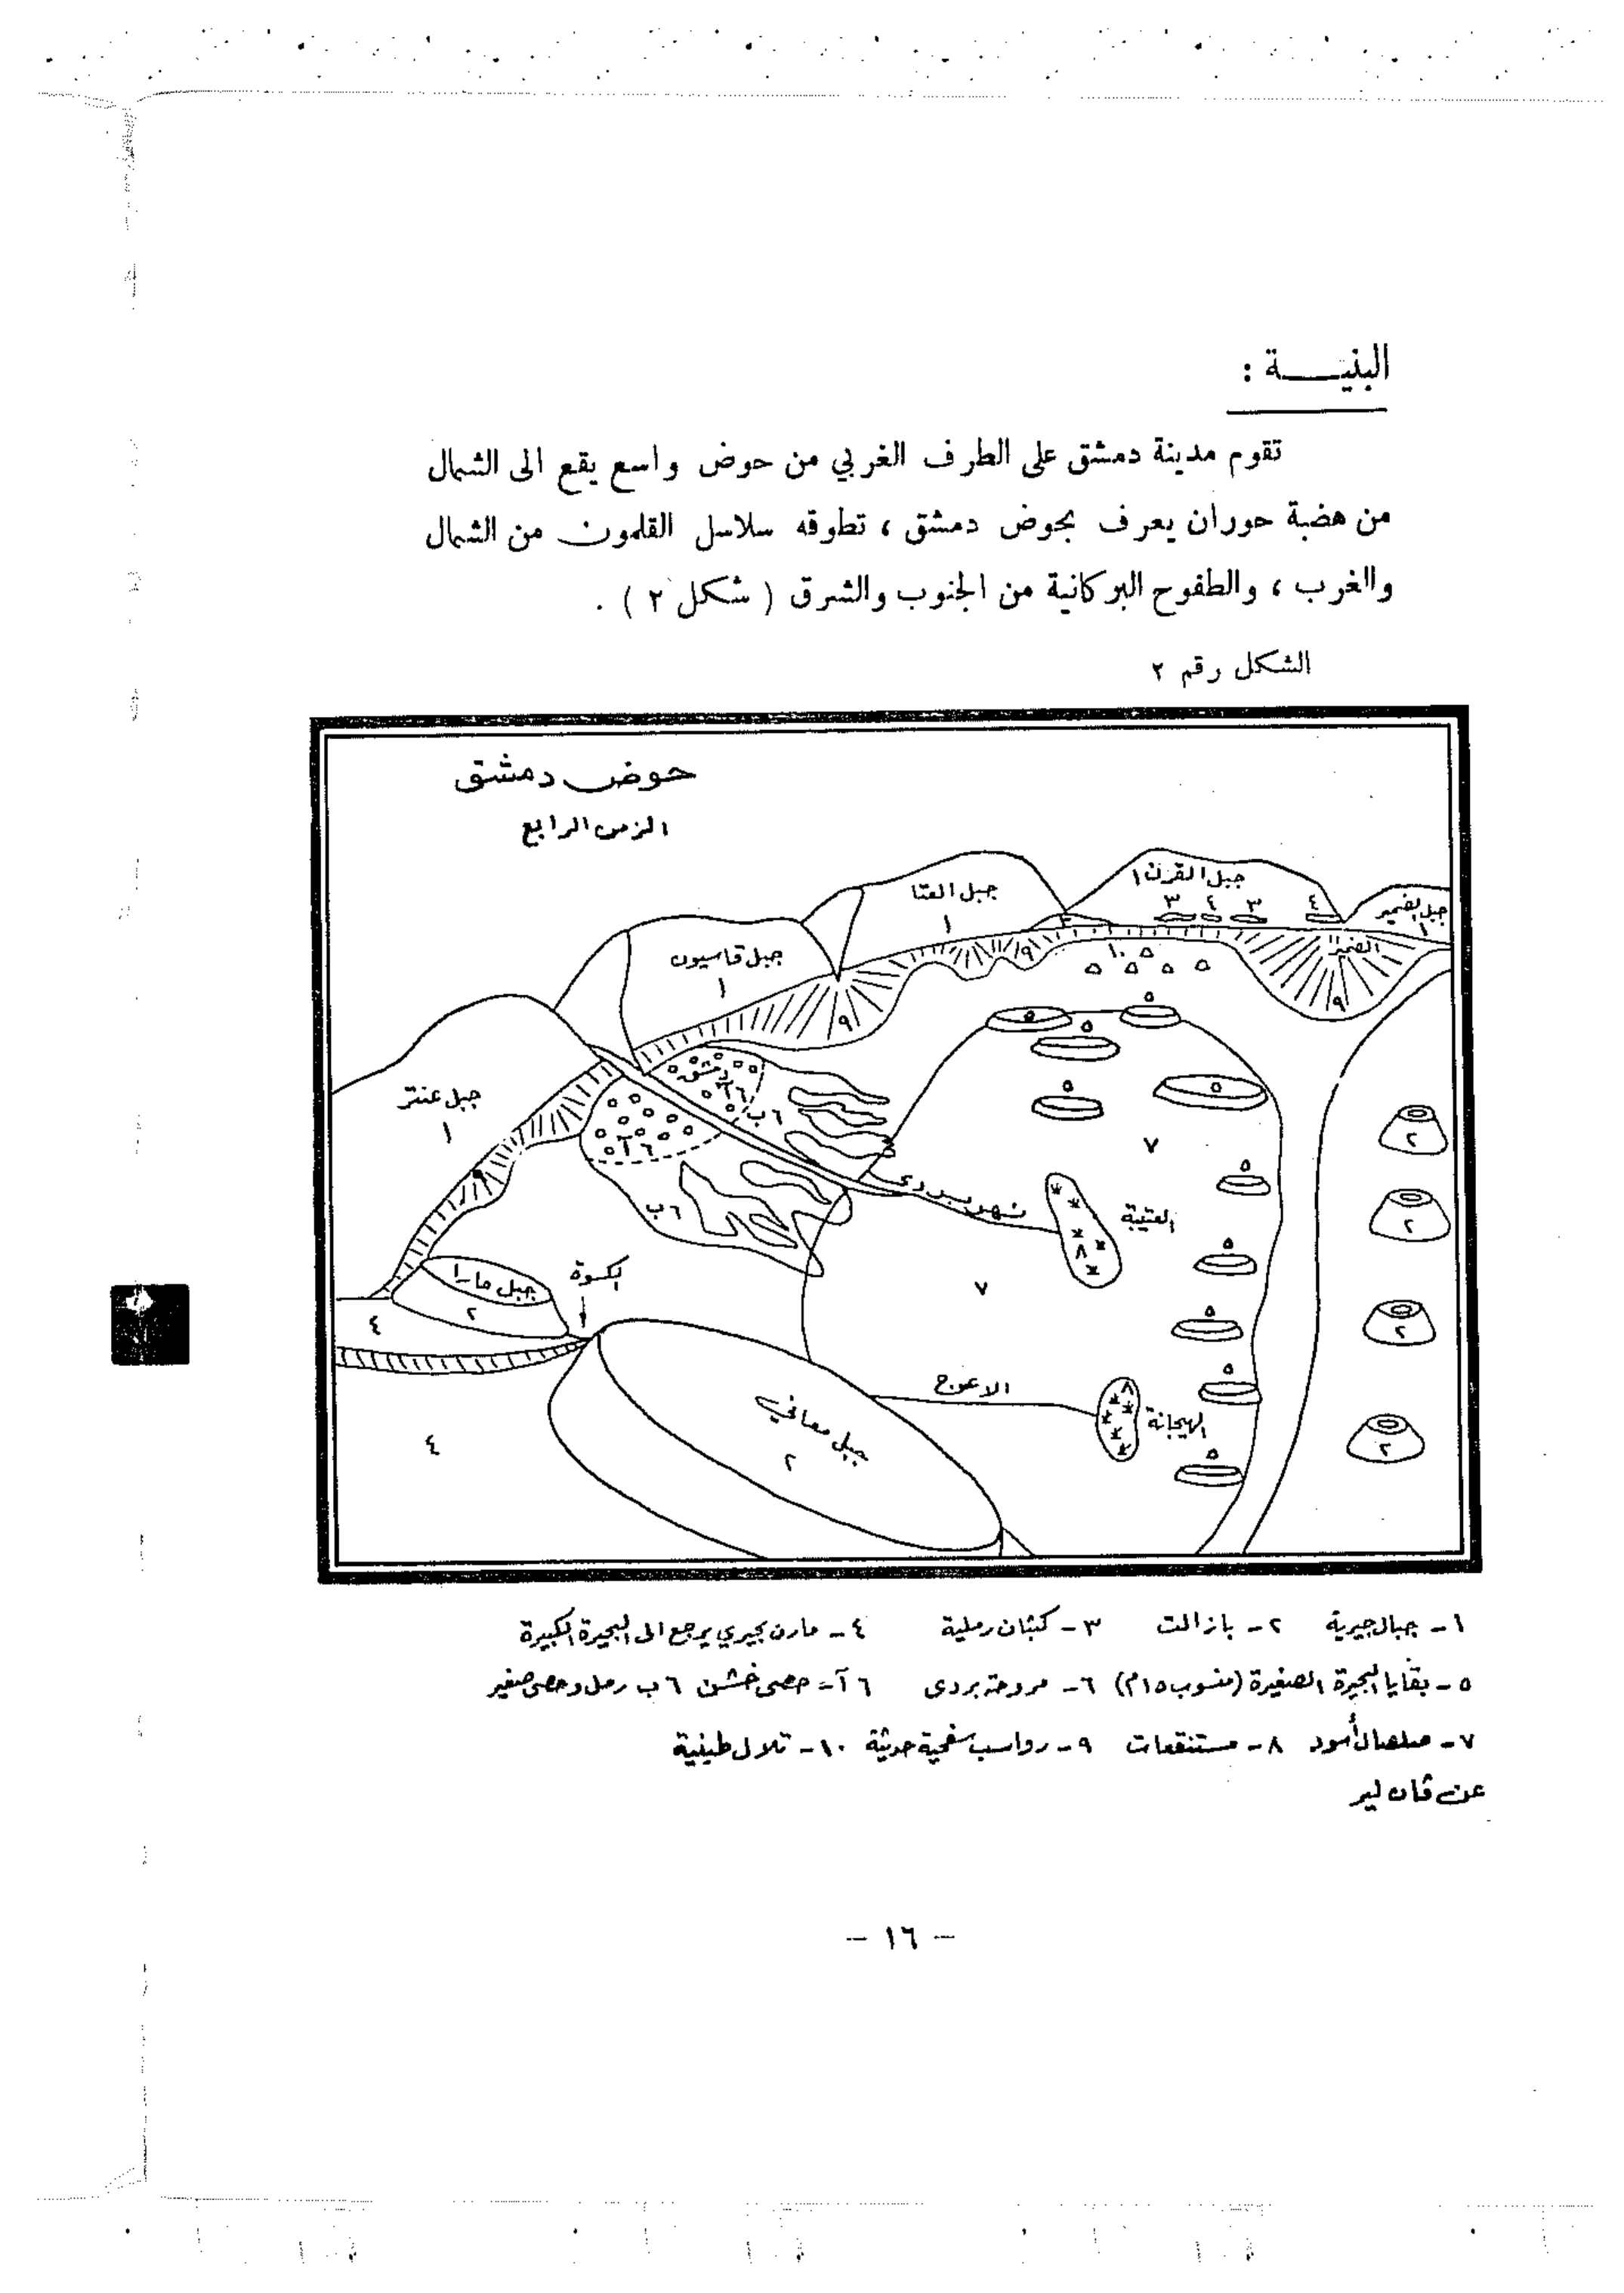 البنيـــــة :
تقوم مدينة دمشق على الطرف الغربي من حوض واسع يقع الى الشمال
من هضبة حوران يعرف بحوض دمشق ، تطوقه سلاسل القلمون من الشمال
والغرب ، والطفوح البركانية من الجنوب والشرق ( شكل ٢ ) .
الشكل رقم ٢
حوض دمشق
الزمن الرابع
جبل القرن ١
جبل العتا
١
جبل الضمير
١
٣ ٤ ٣ ٤
الضمير
جبل قاسيون
١
٩ ٩ ٩
١٠
٥ ٥ ٥
٥ ٥
دمشق
٦ آ
٦ ب
جبل عنتر
١
٦ آ
٧
٢
٥
نهر بردى
العتيبة
٢
٦ ب
٨
٥
الكسوة
جبل مارا
٢
٧
٤
٥
٢
الاعوج
٥
٨
الهيجانة
جبل معاني
٢
٤
٥
٢
١ـ جبال جيرية ٢ـ بازالت ٣ـ كثبان رملية ٤ـ مارن بحيري يرجع الى البحيرة الكبيرة
٥ـ بقايا البحيرة الصغيرة (منسوب ١٥م) ٦ـ مروحة بردى ٦ آ= حصى خشن ٦ ب رمل وحصى صغير
٧ـ صلصال أسود ٨ـ مستنقعات ٩ـ رواسب سفحية حديثة ١٠ـ تلال طينية
عن فان لير
– ١٦ –